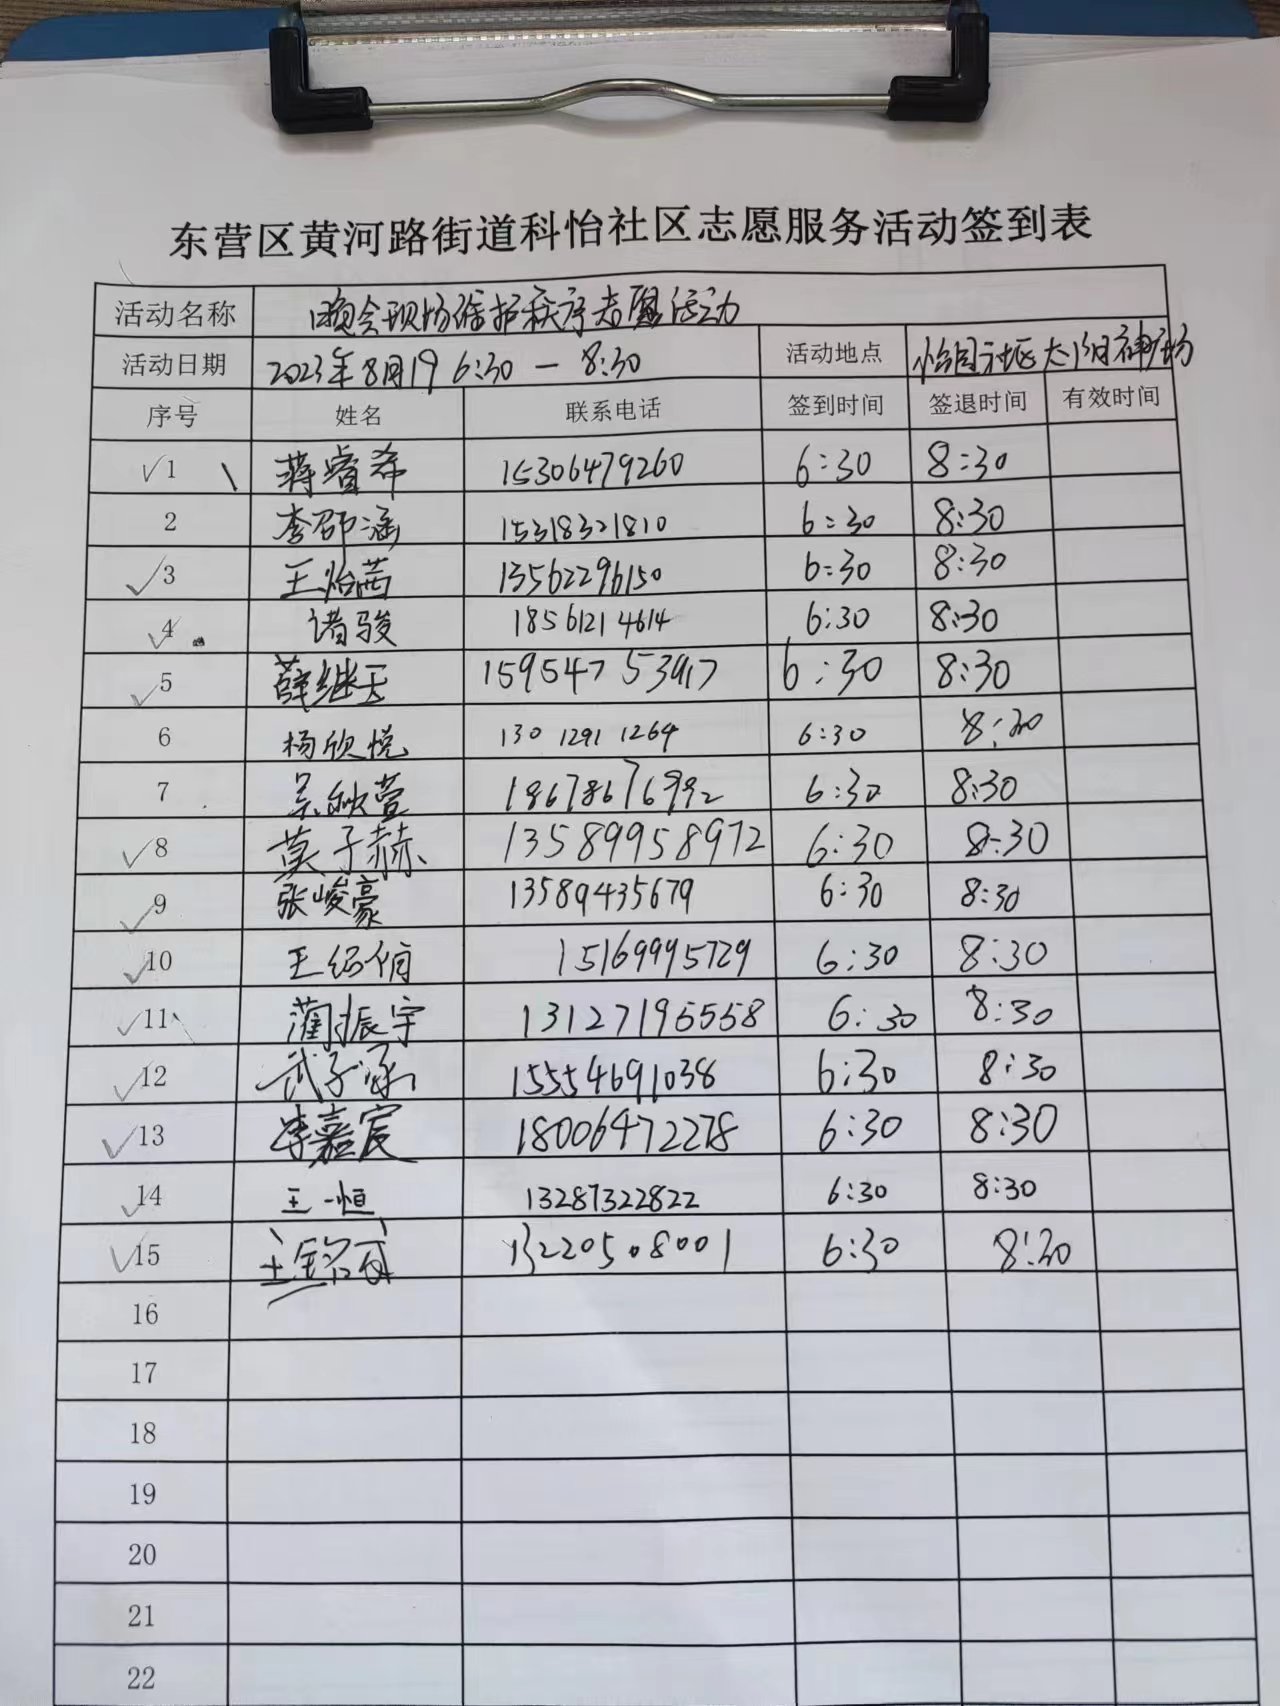 东营区黄河路街道科怡社区志愿服务活动签到表
活动名称 晚会现场维护秩序志愿活动
活动日期 2023年8月19 6:30 — 8:30 活动地点 怡园社区太阳神广场
序号 姓名 联系电话 签到时间 签退时间 有效时间
✓1 蒋睿希 15306479260 6:30 8:30
2 李邵涵 15318321810 6:30 8:30
✓3 王怡茜 13562296150 6:30 8:30
✓4 诸骏 18561214614 6:30 8:30
✓5 薛继天 15954753917 6:30 8:30
6 杨欣悦 130 1291 1264 6:30 8:30
7 18678676992 6:30 8:30
✓8 莫子赫 13589958972 6:30 8:30
✓9 张峻豪 13589435679 6:30 8:30
✓10 王 15169995729 6:30 8:30
✓11 蔺振宇 13127195558 6:30 8:30
✓12 武子涵 15554691038 6:30 8:30
✓13 李嘉宸 18006472278 6:30 8:30
✓14 王一恒 13287322822 6:30 8:30
✓15 王 13220508001 6:30 8:30
16
17
18
19
20
21
22